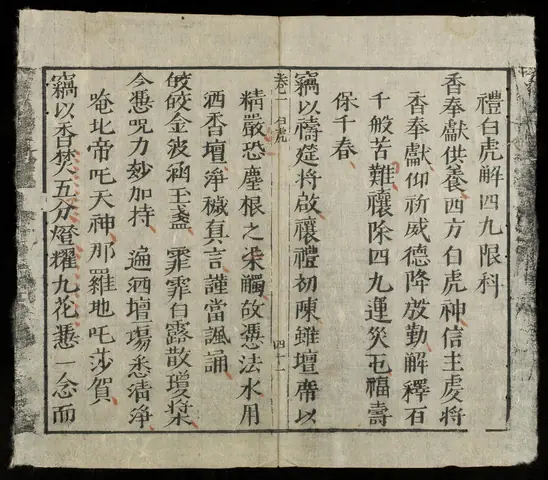 禮白虎解四九限科
香奉獻供養西方白虎神信主虔將
香奉獻仰祈威德降放勤解釋百
千般苦難禳除四九運災屯福壽
保千春
竊以禱筵將啟禳禮初陳雖壇席以
卷一 白虎 四十二
精嚴恐塵根之染觸故憑法水用
洒香壇淨穢真言謹當諷誦
皎皎金波涵玉盞霏霏白露散瓊漿
今憑呪力妙加持 遍洒壇場悉清淨
唵北帝吒天神那羅地吒莎賀
竊以香焚五分燈耀九花憑一念而